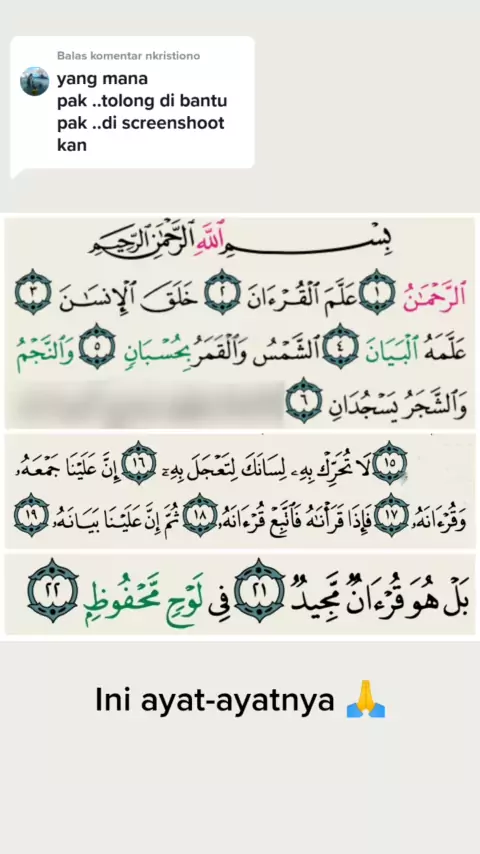 Balas komentar nkristiono
yang mana
pak ..tolong di bantu
pak ..di screenshoot
kan
بِسْمِ ٱللَّهِ ٱلرَّحْمَٰنِ ٱلرَّحِيمِ
ٱلرَّحْمَٰنُ ١ عَلَّمَ ٱلْقُرْءَانَ ٢ خَلَقَ ٱلْإِنسَٰنَ ٣
عَلَّمَهُ ٱلْبَيَانَ ٤ ٱلشَّمْسُ وَٱلْقَمَرُ بِحُسْبَانٍ ٥ وَٱلنَّجْمُ
وَٱلشَّجَرُ يَسْجُدَانِ ٦
١٥ لَا تُحَرِّكْ بِهِۦ لِسَانَكَ لِتَعْجَلَ بِهِۦٓ ١٦ إِنَّ عَلَيْنَا جَمْعَهُۥ
وَقُرْءَانَهُۥ ١٧ فَإِذَا قَرَأْنَٰهُ فَٱتَّبِعْ قُرْءَانَهُۥ ١٨ ثُمَّ إِنَّ عَلَيْنَا بَيَانَهُۥ ١٩
بَلْ هُوَ قُرْءَانٌ مَّجِيدٌ ٢١ فِى لَوْحٍ مَّحْفُوظٍۭ ٢٢
Ini ayat-ayatnya 🙏